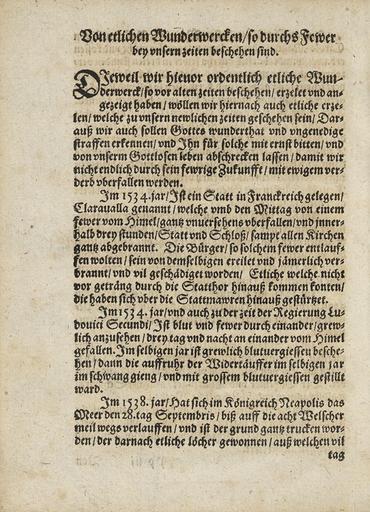 Von etlichen Wunderwercken/so durchs Fewer
bey vnsern zeiten beschehen sind.
DJeweil wir hieuor ordentlich etliche Wun-
derwerck/so vor alten zeiten beschehen/ erzelet vnd an-
gezeigt haben/ wöllen wir hiernach auch etliche erze-
len/ welche zu vnsern newlichen zeiten geschehen sein/ Dar-
auß wir auch sollen Gottes wunderthat vnd vngenedige
straffen erkennen/ vnd Jhn für solche mit ernst bitten/ vnd
von vnserm Gottlosen leben abschrecken lassen/ damit wir
nicht endlich durch sein fewrige Zukunfft/ mit ewigem ver-
derb vberfallen werden.
Jm 1534. jar/ Jst ein Statt in Franckreich gelegen/
Claraualla genannt/ welche vmb den Mittag von einem
fewer vom Himel/ gantz vnuersehens vberfallen/ vnd jnner-
halb drey stunden/ Statt vnd Schloß/ sampt allen Kirchen
gantz abgebrannt. Die Bürger/ so solchem fewer entlauf-
fen wolten/ sein von demselbigen ereilet vnd jämerlich ver-
brannt/ vnd vil geschädiget worden/ Etliche welche nicht
vor geträng durch die Statthor hinauß kommen konten/
die haben sich vber die Stattmawren hinauß gestürtzet.
Jm 1534. jar/ vnd auch zu der zeit der Regierung Lu-
douici Secundi/ Jst blut vnd fewer durch einander/ grew-
lich anzusehen/ drey tag vnd nacht an einander vom Himel
gefallen. Jm selbigen jar ist grewlich blutuergiessen besche-
hen/ dann die auffruhr der Widertäuffer im selbigen jar
im schwang gieng/ vnd mit grossem blutuergiessen gestillt
ward.
Jm 1538. jar/ Hat sich im Königreich Neapolis das
Meer den 28. tag Septembris/ biß auff die acht Welscher
meil wegs verlauffen/ vnd ist der grund gantz trucken wor-
den/ der darnach etliche löcher gewonnen/ auß welchen vil
tag